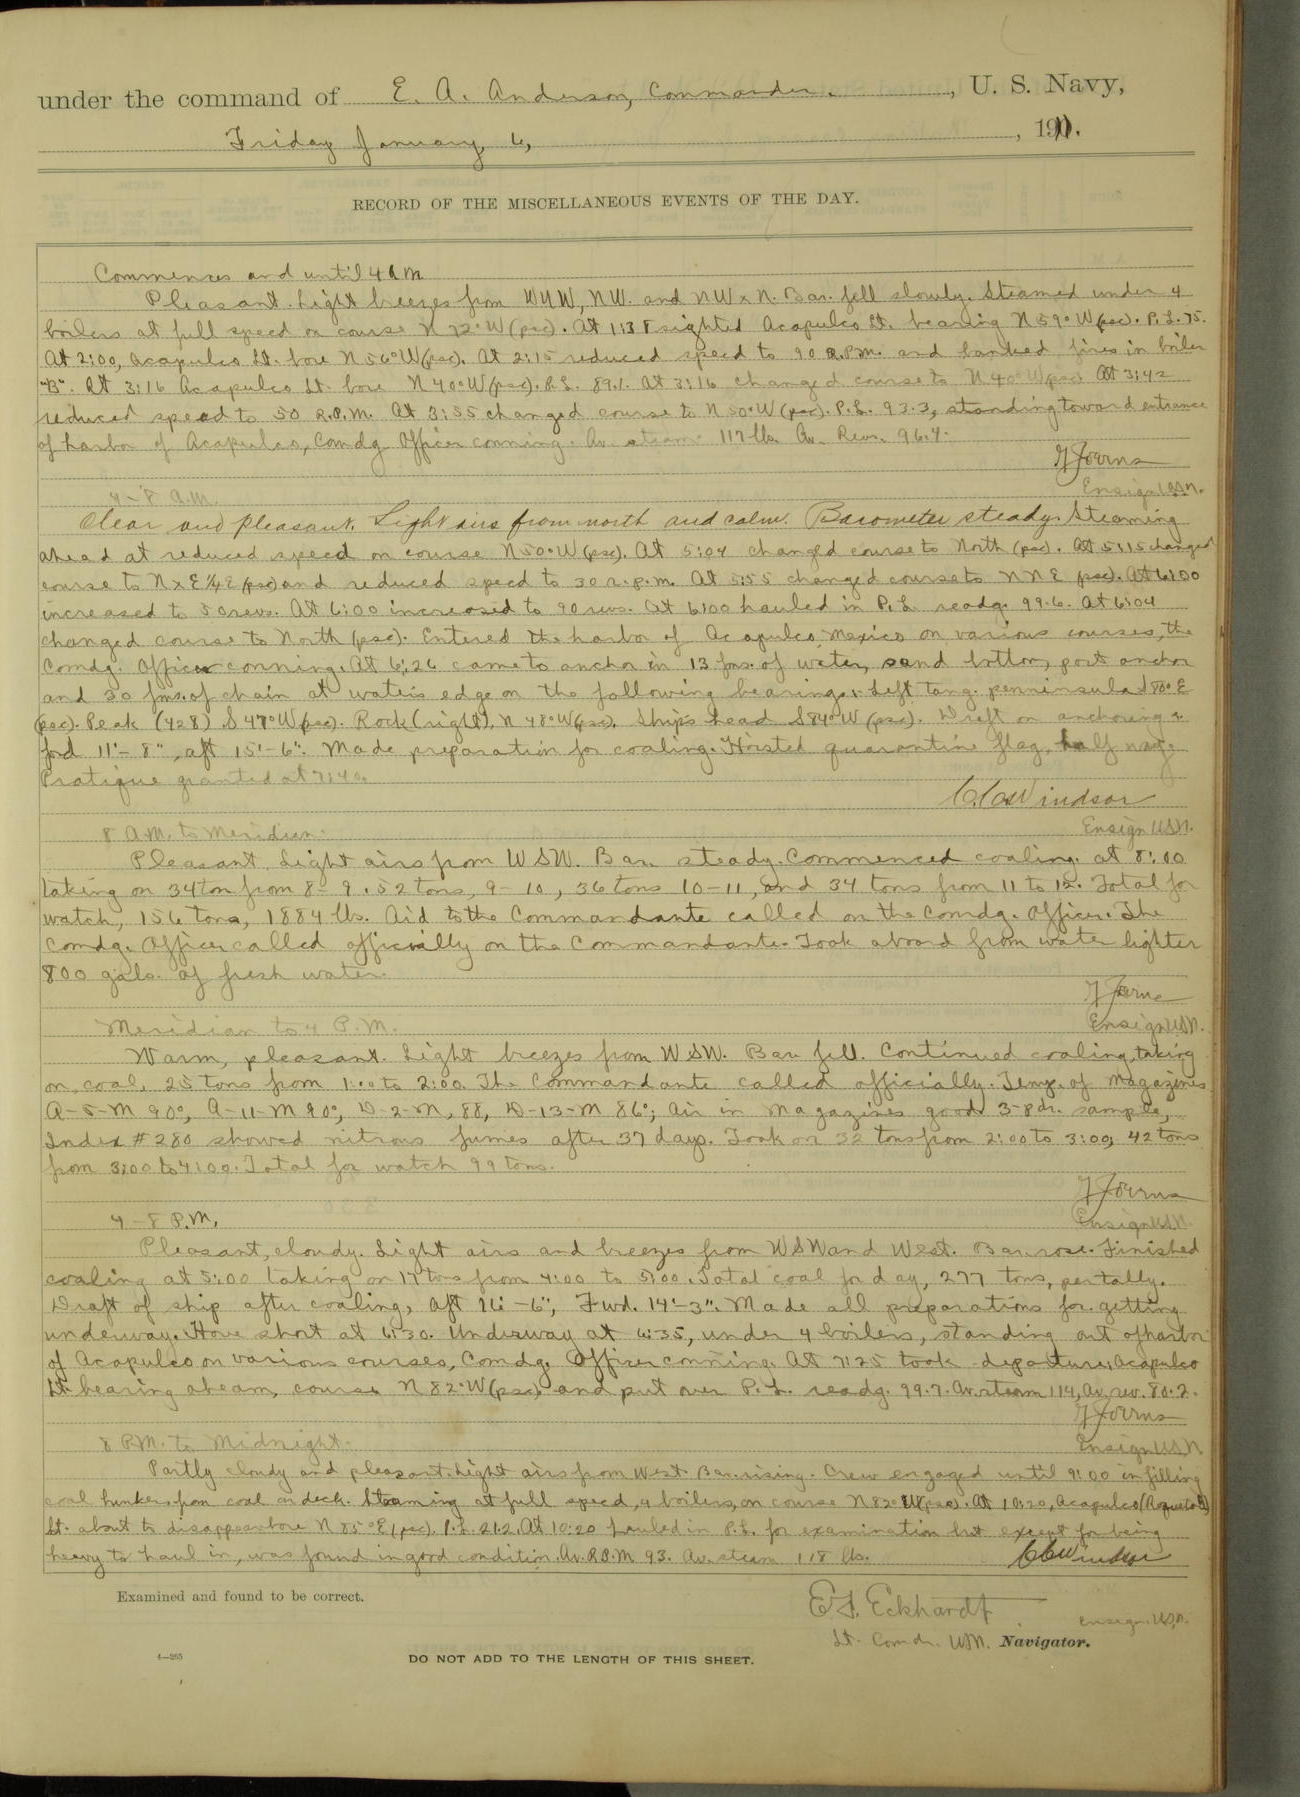 under the command of E. A. Anderson, Commander, U. S. Navy,
Friday January 6, , 1911.
RECORD OF THE MISCELLANEOUS EVENTS OF THE DAY.
Commences and until 4 a m
Pleasant. Light breezes from WNW, NW. and NW x N. Bar. fell slowly. Steamed under 4
boilers at full speed on course N 72° W (psc). At 1:38 sighted Acapulco Lt. bearing N 59° W (psc). P.L. 75.
At 2:00, Acapulco Lt. bore N 56° W (psc). At 2:15 reduced speed to 90 R.P.M. and banked fires in boiler
"B". At 3:16 Acapulco Lt. bore N 40° W (psc). P.L. 89.1. At 3:16 changed course to N 40° W (psc) At 3:42
reduced speed to 50 R.P.M. At 3:55 changed course to N 50° W (psc). P.L. 93.3, standing toward entrance
of harbor of Acapulco, Comdg Officer conning. Av. steam 117 lbs. Av. Revs. 96.4.
Ensign USN.
4-8 a.m.
Clear and pleasant. Light airs from north and calm. Barometer steady. Steaming
ahead at reduced speed on course N 50° W (psc). At 5:04 changed course to North (psc). At 5:15 changed
course to N x E ¼ E (psc) and reduced speed to 30 r.p.m. At 5:55 changed course to NNE (psc). At 6:00
increased to 50 revs. At 6:00 increased to 90 revs. At 6:00 hauled in P.L. readg. 99.6. At 6:04
changed course to North (psc). Entered the harbor of Acapulco, Mexico on various courses, the
Comdg. Officer conning. At 6:26 came to anchor in 13 fms. of water, sand bottom, port anchor
and 30 fms. of chain at water's edge on the following bearings: Left tang. penninsula S 80° E
(psc). Peak (428) S 47° W (psc). Rock (right), N 48° W (psc). Ship's head S 84° W (psc). Draft on anchoring:
ford 11'-8", aft 15'-6". Made preparation for coaling. Hoisted quarantine flag, half way.
Pratique granted at 7:40.
C.C. Windsor
Ensign USN.
8 A.M. to Meridian.
Pleasant. Light airs from WSW. Bar. steady. Commenced coaling at 8:00
taking on 34 ton from 8-9, 52 tons, 9-10, 36 tons 10-11, and 34 tons from 11 to 12. Total for
watch, 156 tons, 1884 lbs. Aid to the Commandante called on the Comdg. Officer. The
Comdg. Officer called officially on the Commandante. Took aboard from water lighter
800 gals. of fresh water.
Ensign USN.
Meridian to 4 P.M.
Warm, pleasant. Light breezes from WSW. Bar fell. Continued coaling, taking
on, coal, 25 tons from 1:00 to 2:00. The Commandante called officially. Temp. of Magazines
A-5-M 90°, A-11-M 90°, D-2-M, 88, D-13-M 86°; Air in Magazines good. 3-pdr. sample,
Index #280 showed nitrous fumes after 37 days. Took on 32 tons from 2:00 to 3:00, 42 tons
from 3:00 to 4:00. Total for watch 99 tons.
Ensign USN.
4-8 P.M.
Pleasant, cloudy. Light airs and breezes from WSW and West. Bar. rose. Finished
coaling at 5:00 taking on 17 tons from 4:00 to 5:00. Total coal for day, 277 tons, per tally.
Draft of ship after coaling, aft 16'-6", Fwd. 14'-3". Made all preparations for getting
underway. Hove short at 6:30. Underway at 6:35, under 4 boilers, standing out of harbor
of Acapulco on various courses, Comdg. Officer conning. At 7:25 took departure, Acapulco
Lt. bearing abeam, course N 82° W (psc) and put over P.L. readg. 99.7. Av. steam 114, Av. rev. 80.2.
Ensign USN
8 P.M. to Midnight.
Partly cloudy and pleasant. Light airs from West. Bar. rising. Crew engaged until 9:00 in filling
coal bunkers from coal on deck. Steaming at full speed, 4 boilers, on course N 82° W (psc). At 10:20, Acapulco
Lt. about to disappear bore N 85° E (psc). P.L. 21.2. At 10:20 hauled in P.L. for examination but except for being
heavy to haul in, was found in good condition. Av. R.P.M 93. Av. steam 118 lbs. C.C. Windsor
Ensign. USN.
Examined and found to be correct.
E. F. Eckhardt
Lt. Comdr. USN. Navigator.
4—265
DO NOT ADD TO THE LENGTH OF THIS SHEET.